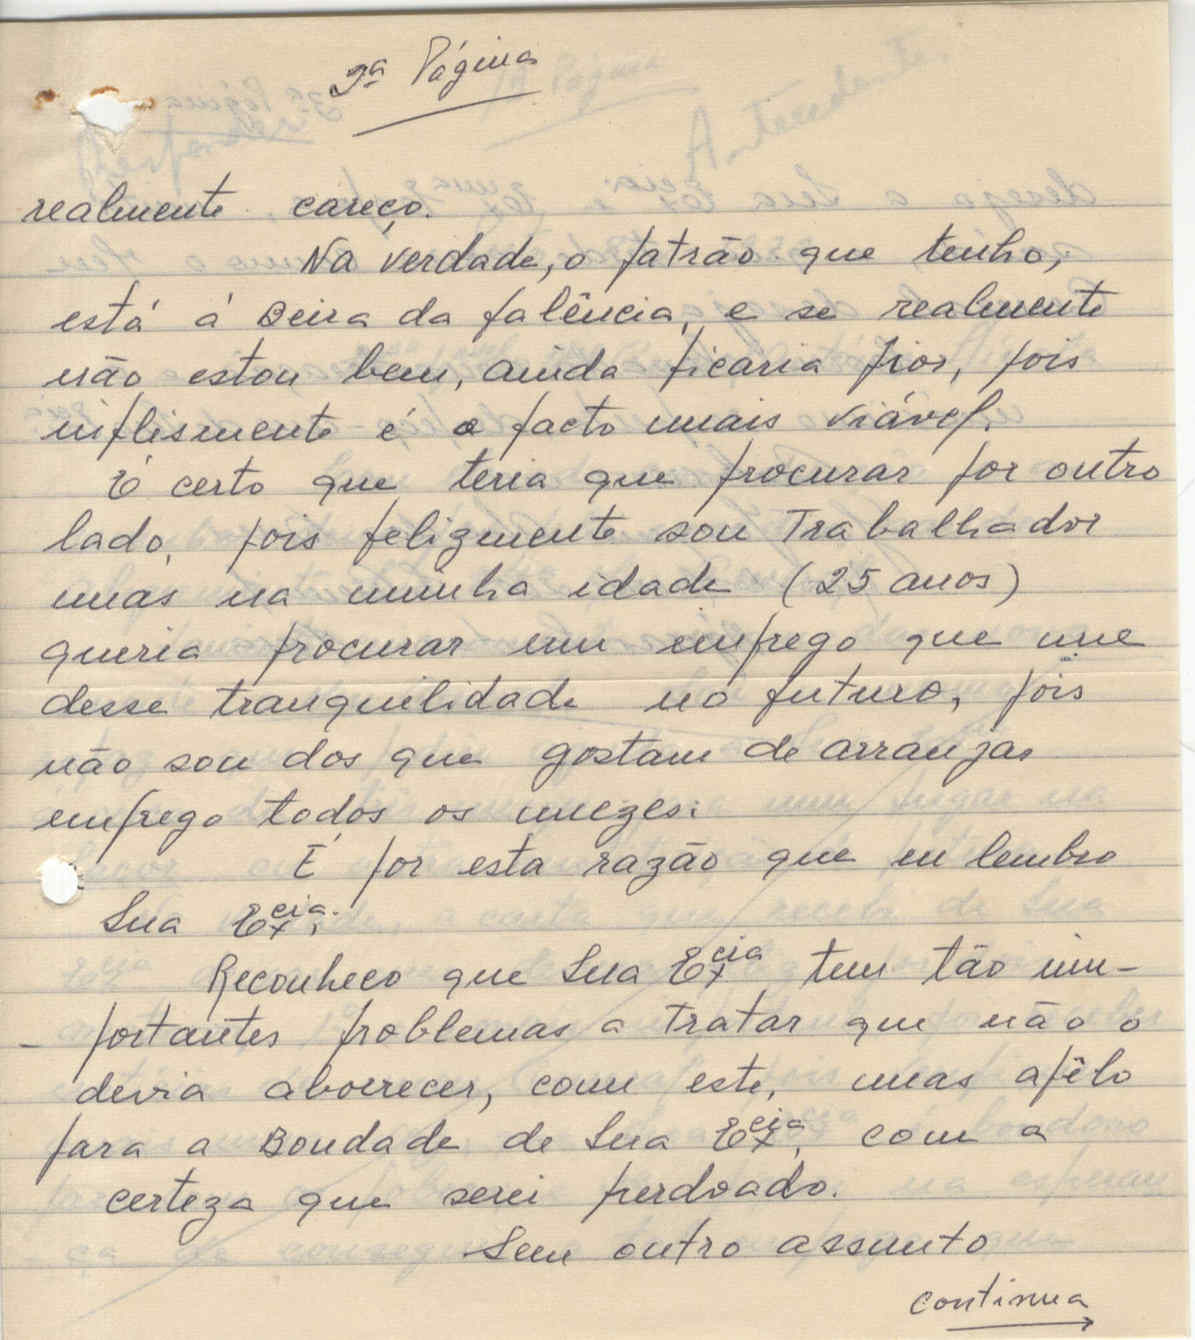 2ª Página
realmente careço.
Na verdade, o patrão que tenho,
está á Beira da falência, e se realmente
não estou bem, ainda ficaria pior, pois
inflismente é o facto mais viável.
É certo que teria que procurar por outro
lado, pois felizmente sou Trabalhador
mas na minha idade (25 anos)
queria procurar um emprego que me
desse tranquilidade no futuro, pois
não sou dos que gostam de arranjar
emprego todos os mezes.
É por esta razão que eu lembro
Sua Excia.
Reconheço que Sua Excia tem tão im-
- portantes problemas a tratar que não o
devia aborrecer, com este, mas apêlo
para a Bondade de Sua Excia, com a
certeza que serei perdoado.
Sem outro assunto
continua